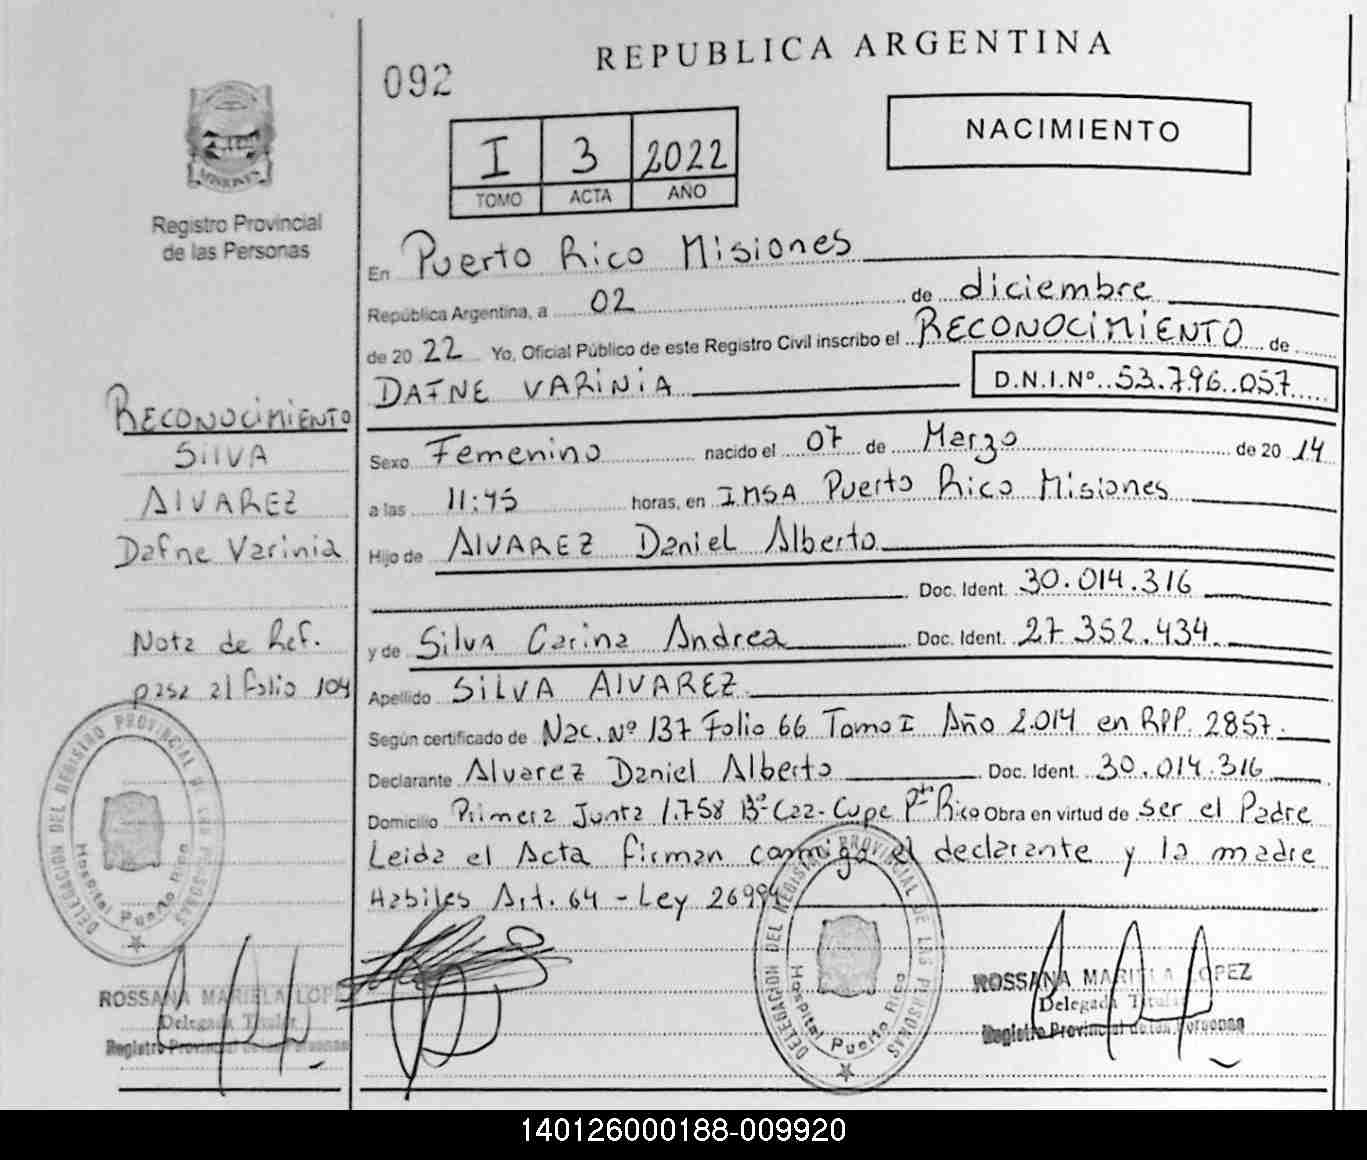 092
REPUBLICA ARGENTINA
NACIMIENTO
I 3 2022
TOMO ACTA AÑO
MISIONES
Registro Provincial
de las Personas
En Puerto Rico Misiones
República Argentina, a 02 de diciembre
de 20 22 Yo, Oficial Público de este Registro Civil inscribo el RECONOCIMIENTO de
DAFNE VARINIA D.N.I.Nº 53.796.057
Sexo Femenino nacido el 07 de Marzo de 20 14
a las 11:45 horas, en IMSA Puerto Rico Misiones
Hijo de ALVAREZ Daniel Alberto
Doc. Ident. 30.014.316
y de Silva Carina Andrea Doc. Ident. 27.352.434
Apellido SILVA ALVAREZ
Según certificado de Nac. Nº 137 Folio 66 Tomo I Año 2.014 en RPP. 2857
Declarante Alvarez Daniel Alberto Doc. Ident. 30.014.316
Domicilio Primera Junta 1.758 Bº Caa-Cupe Pto Rico Obra en virtud de ser el Padre
Leida el Acta firman conmigo el declarante y la madre
Habiles Art. 64 - Ley 26994
RECONOCIMIENTO
SILVA
ALVAREZ
Dafne Varinia
Nota de Ref.
pasa al folio 104
DELEGACION DEL REGISTRO PROVINCIAL DE LAS PERSONAS
Hospital Puerto Rico
ROSSANA MARIELA LOPEZ
Delegada Titular
Registro Provincial de las Personas
DELEGACION DEL REGISTRO PROVINCIAL DE LAS PERSONAS
Hospital Puerto Rico
ROSSANA MARIELA LOPEZ
Delegada Titular
Registro Provincial de las Personas
140126000188-009920